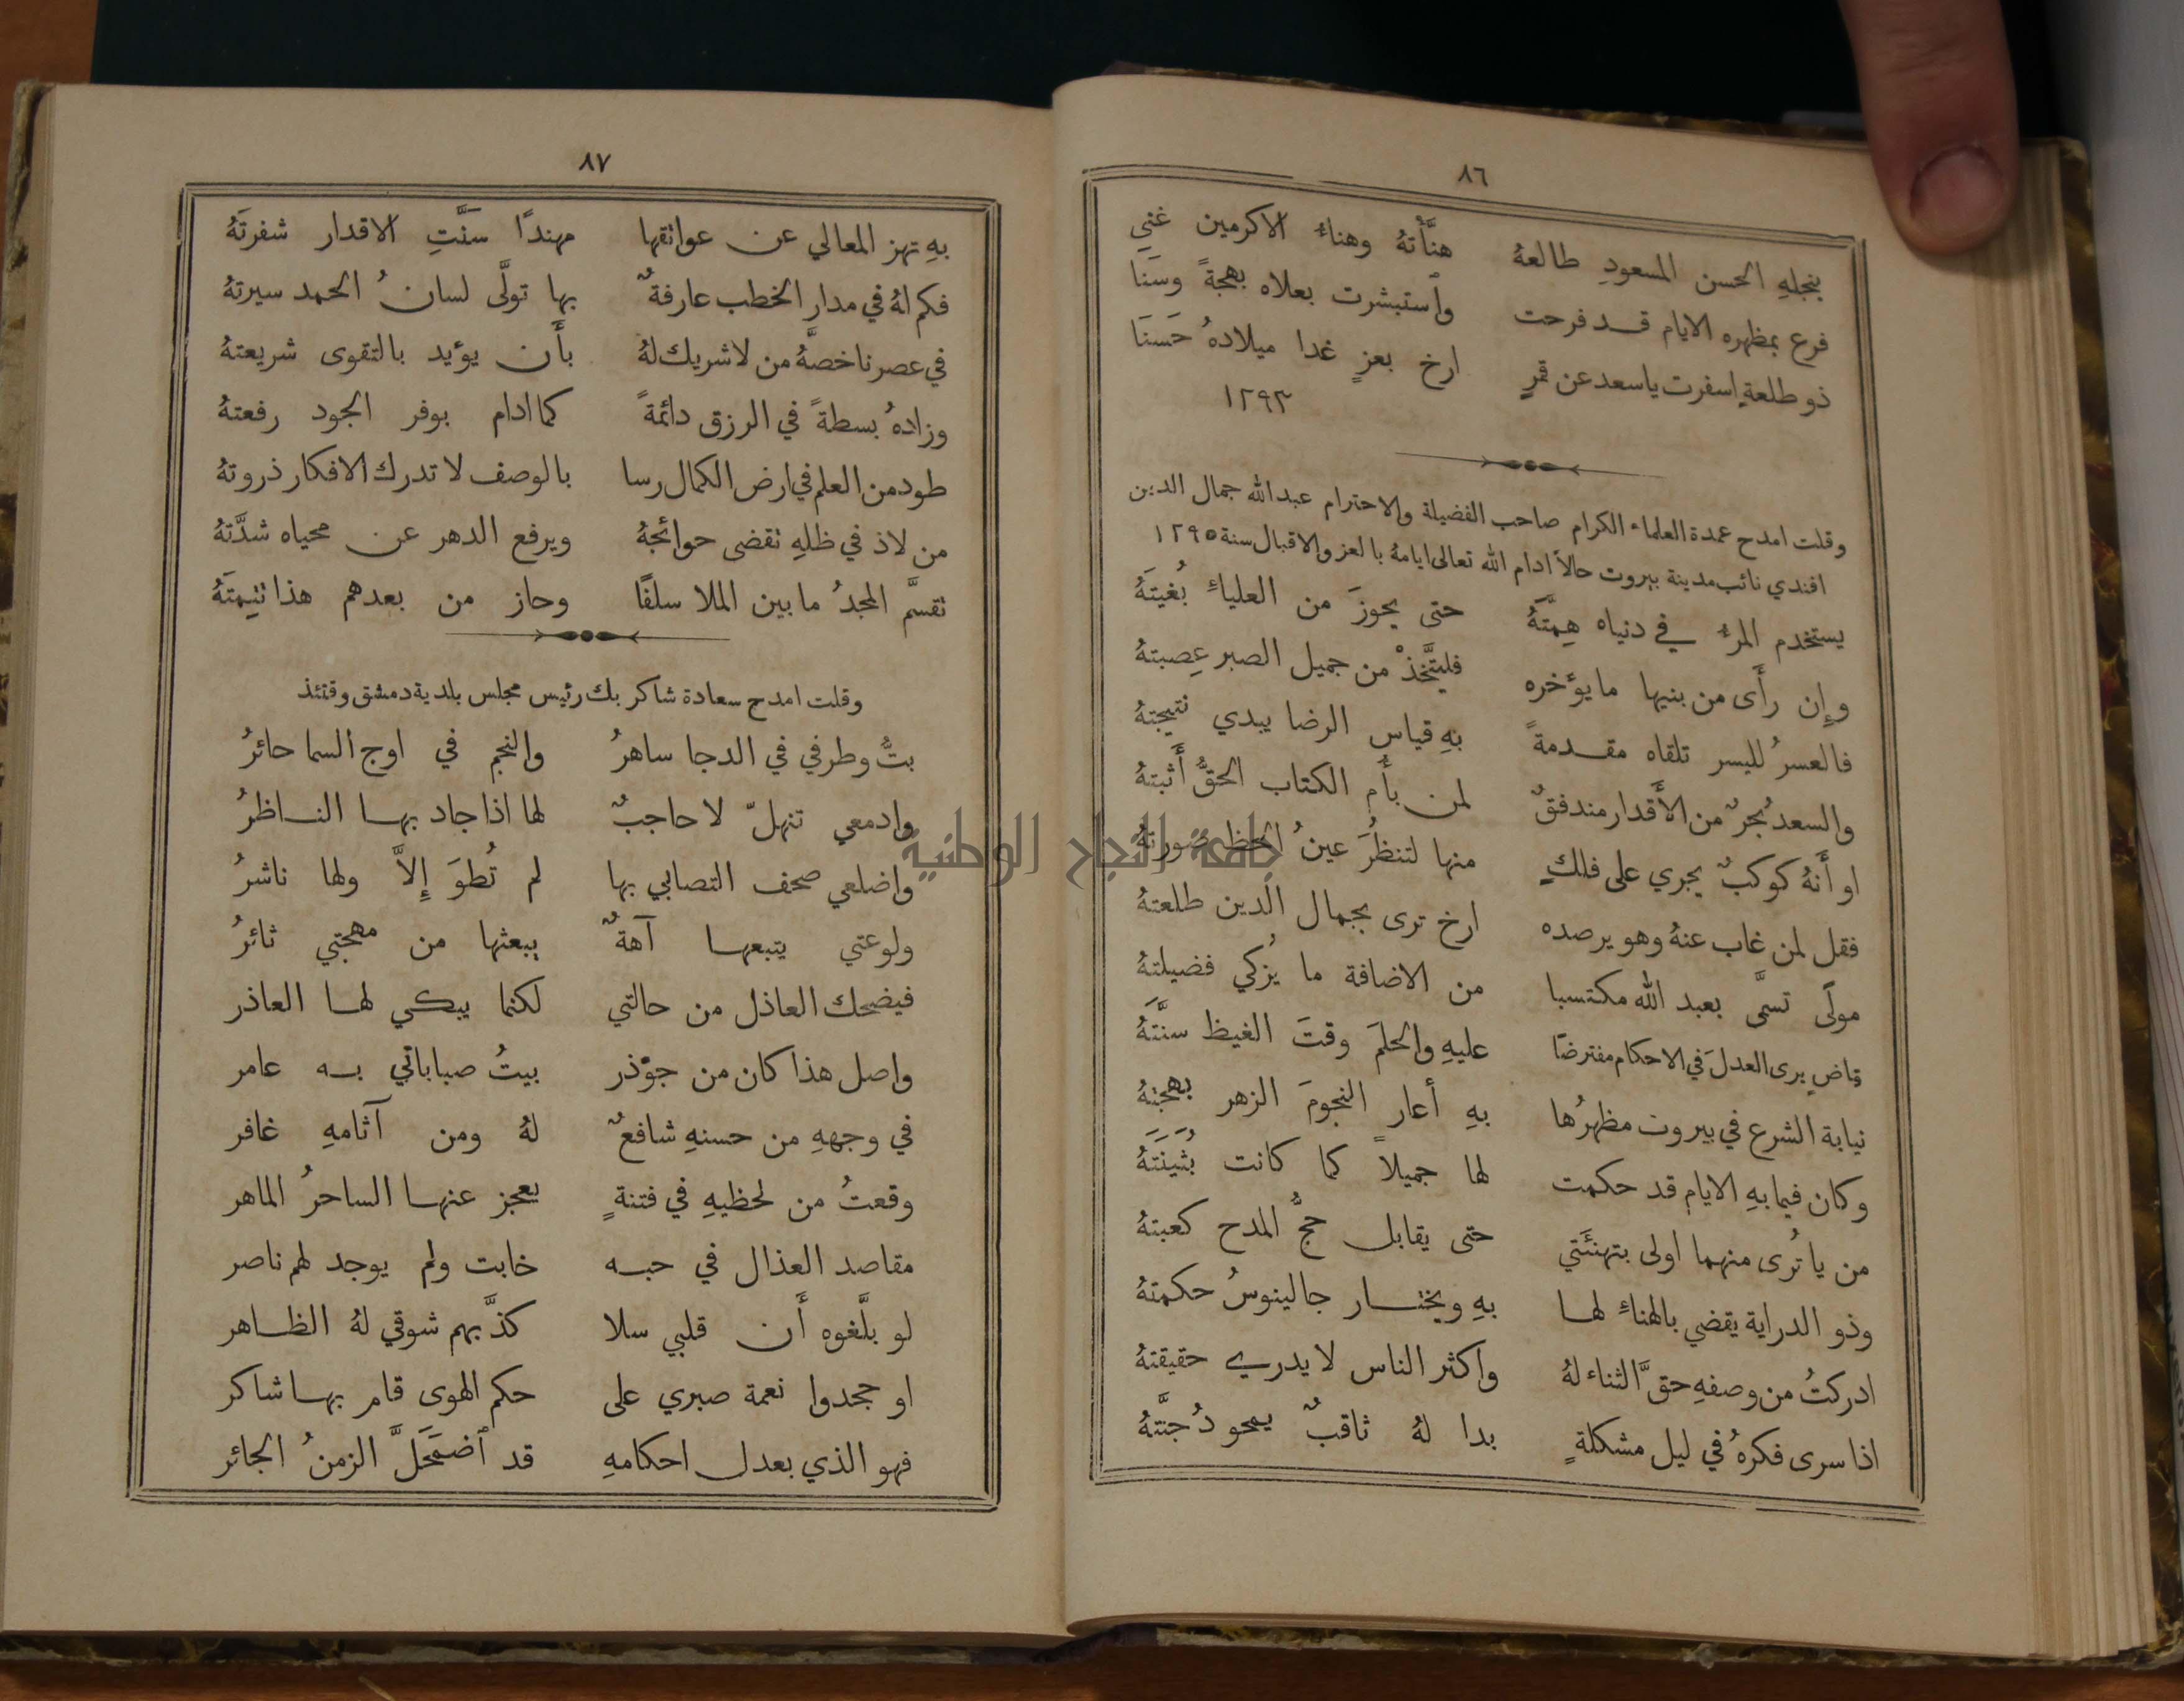 ٨٦
بنجلهِ الحسن المسعودِ طالعهُ هنَّأْتهُ وهناءُ الاكرمين غنىِ
فرع بمظهره الايام قد فرحت وأستبشرت بعلاه بهجةً وسَنا
ذو طلعةٍ اسفرت ياسعد عن قمرٍ ارخ بعزٍ غدا ميلادهُ حَسَنَا
١٢٩٣
وقلت امدح عمدة العلماء الكرام صاحب الفضيلة والاحترام عبدالله جمال الدين
افندي نائب مدينة بيروت حالاً ادام الله تعالى ايامهُ بالعز والاقبال سنة ١٢٩٥
يستخدم المرءُ في دنياه هِمَّتَهُ حتى يحوزَ من العلياءِ بُغيتَهُ
وإِن رأَى من بنيها ما يؤخره فليتَّخذْ من جميل الصبر عِصبتهُ
فالعسرُ لليسر تلقاه مقدمةً بهِ قياس الرضا يبدي نتيجتهُ
والسعدُ بحرٌ من الأَقدار مندفقٌ لمن بأُم الكتاب الحقُّ أَثبتهُ
او أَنهُ كوكبٌ يجري على فلكٍ منها لتنظُرَ عينُ الحظ صورتهُ
فقل لمن غاب عنهُ وهو يرصده ارخ ترى بجمال الدين طلعتهُ
مولًى تسمَّى بعبد الله مكتسبا من الاضافة ما يُزكي فضيلتهُ
قاضٍ يرى العدلَ في الاحكام مفترضًا عليهِ والحلمَ وقتَ الغيظ سنَّتَهُ
نيابة الشرع في بيروت مظهرُها بهِ أعار النجومَ الزهر بهجتهُ
وكان فيما بهِ الايام قد حكمت لها جميلاً كما كانت بُثَينَتَهُ
من يا تُرى منهما اولى بتهنئَتي حتى يقابل حجُّ المدح كعبتهُ
وذو الدراية يقضي بالهناءِ لها بهِ ويختار جالينوسُ حكمتهُ
ادركتُ من وصفهِ حقَّ الثناء لهُ واكثر الناس لا يدري حقيقتهُ
اذا سرى فكرهُ في ليل مشكلةٍ بدا لهُ ثاقبٌ يمحو دُجنَّتهُ
٨٧
بهِ تهز المعالي عن عواتقها مهندًا سَنَّتِ الاقدار شفرتَهُ
فكم لهُ في مدار الخطب عارفةٌ بها تولَّى لسانُ الحمد سيرتهُ
في عصرنا خصهُ من لا شريك لهُ بأَن يؤيد بالتقوى شريعتهُ
وزادهُ بسطةً في الرزق دائمةً كما ادام بوفر الجود رفعتهُ
طود من العلم في ارض الكمال رسا بالوصف لا تدرك الافكار ذروتهُ
من لاذ في ظلهِ تقضى حوائجهُ ويرفع الدهر عن محياه شدَّتهُ
تقسَّم المجدُ ما بين الملا سلفًا وحاز من بعدهم هذا تتِمتَهُ
وقلت امدح سعادة شاكر بك رئيس مجلس بلدية دمشق وقتئذ
بتُّ وطرفي في الدجا ساهرُ والنجم في اوج السما حائرُ
وادمعي تنهلّ لا حاجبٌ لها اذا جاد بها الناظرُ
واضلعي صحف التصابي بها لم تُطوَ إِلاَّ ولها ناشرُ
ولوعتي يتبعها آهةٌ يبعثها من مهجتي ثائرُ
فيضحك العاذل من حالتي لكنما يبكي لها العاذر
واصل هذا كان من جوْذر بيتُ صباباتي به عامر
في وجههِ من حسنهِ شافعٌ لهُ ومن آثامهِ غافر
وقعتُ من لحظيهِ في فتنةٍ يعجز عنها الساحرُ الماهر
مقاصد العذال في حبه خابت ولم يوجد لهم ناصر
لو بلَّغوه أَن قلبي سلا كذَّبهم شوقي لهُ الظاهر
او جحدوا نعمة صبري على حكم الهوى قام بها شاكر
فهو الذي بعدل احكامهِ قد أضمَحَلَّ الزمنُ الجائر
جامعة النجاح الوطنية